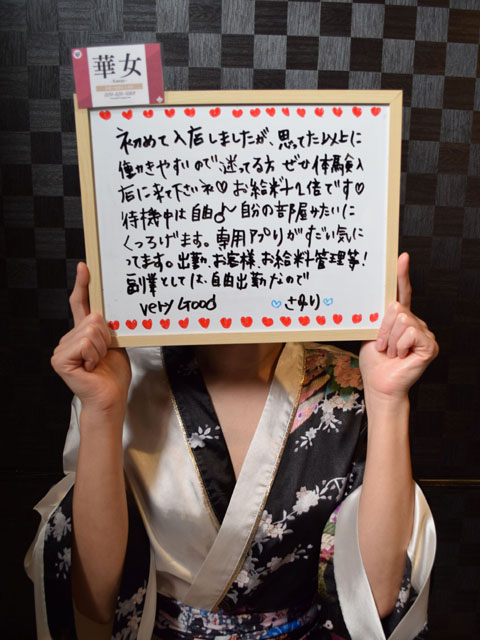 華女
初めて入店しましたが、思ってた以上に
働きやすいので、迷ってる方 ぜひ体験入
店に来て下さいネ♡ お給料も倍です♡
待機中は自由♪〜 自分の部屋みたいに
くつろげます。専用アプリがすごい気に
ってます。出勤、お客様、お給料管理等!
副業としては、自由出勤なので
very Good
さゆり